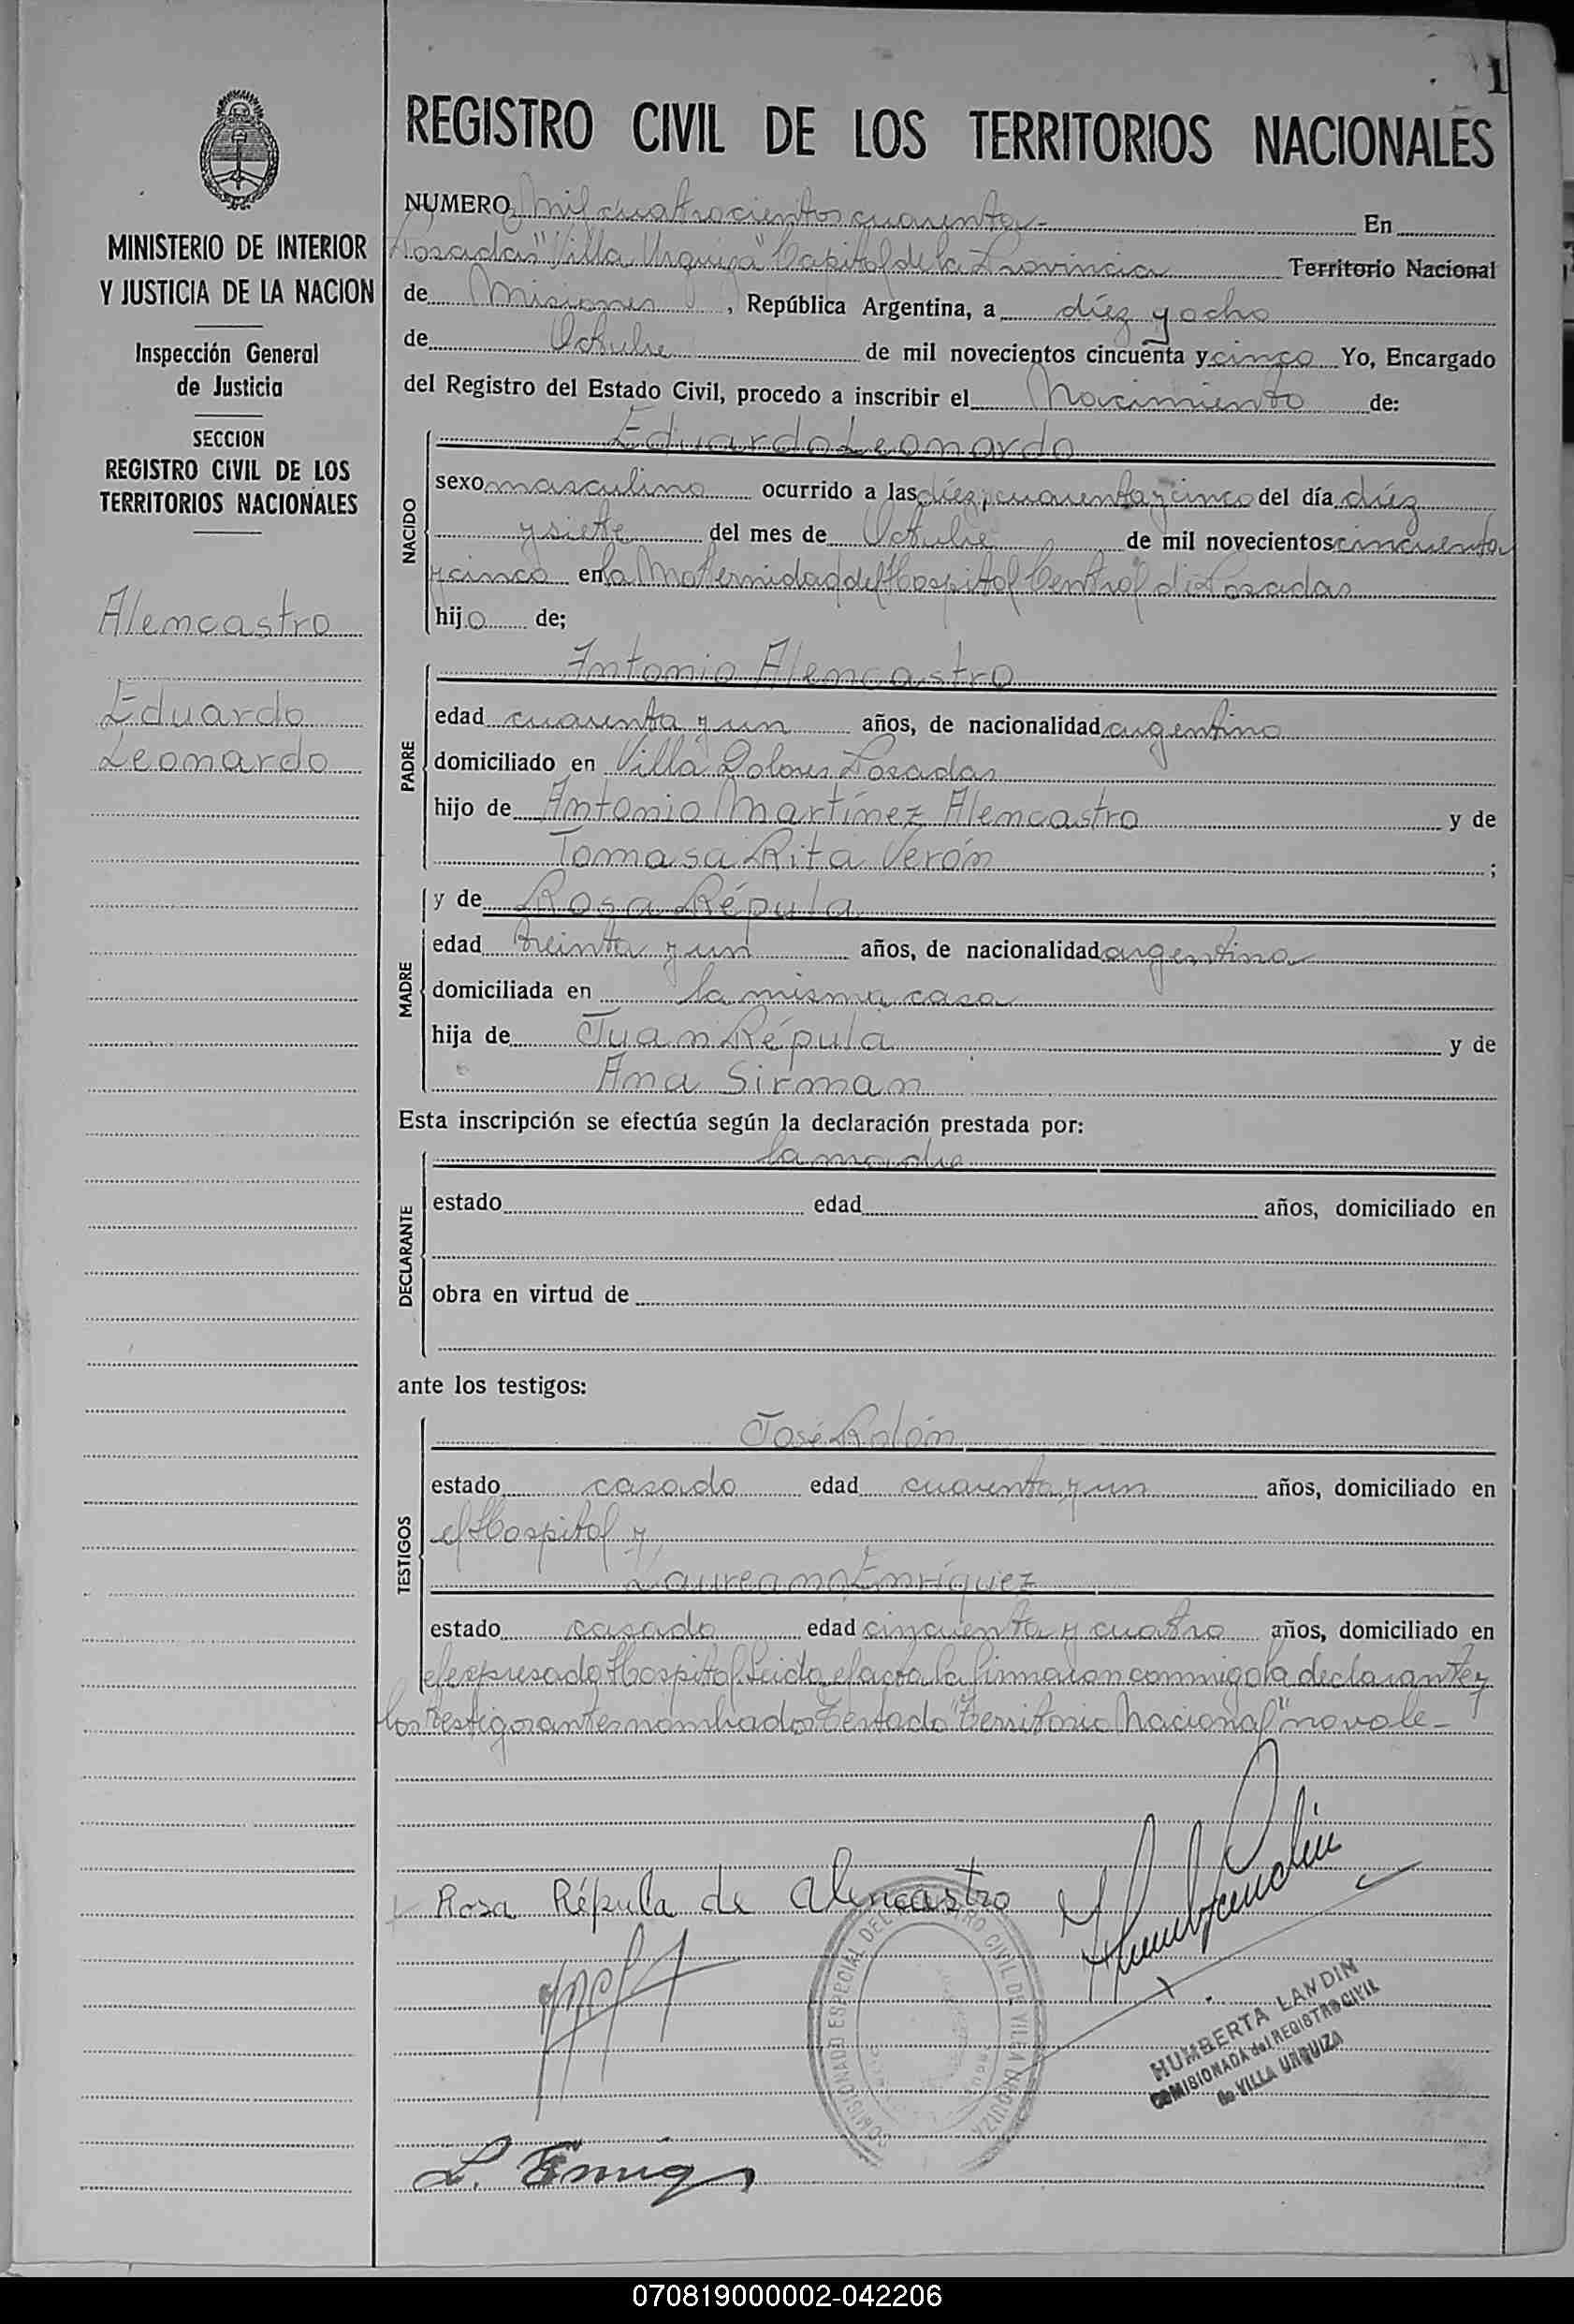 1
MINISTERIO DE INTERIOR
Y JUSTICIA DE LA NACION
Inspección General
de Justicia
SECCION
REGISTRO CIVIL DE LOS
TERRITORIOS NACIONALES
Alencastro
Eduardo
Leonardo
REGISTRO CIVIL DE LOS TERRITORIOS NACIONALES
NUMERO Mil cuatrocientos cuarenta - En
Posadas "Villa Urquiza" Capital de la Provincia Territorio Nacional
de Misiones, República Argentina, a diez y ocho
de Octubre de mil novecientos cincuenta y cinco Yo, Encargado
del Registro del Estado Civil, procedo a inscribir el Nacimiento de:
Eduardo Leonardo
NACIDO
sexo masculino ocurrido a las diez, cuarenta y cinco del día diez
y siete del mes de Octubre de mil novecientos cincuenta
y cinco en la Maternidad del Hospital Central de Posadas
hijo de;
Antonio Alencastro
PADRE
edad cuarenta y un años, de nacionalidad argentino
domiciliado en Villa Dolores Posadas
hijo de Antonio Martínez Alencastro y de
Tomasa Rita Verón ;
y de Rosa Répula
MADRE
edad treinta y un años, de nacionalidad argentina
domiciliada en la misma casa
hija de Juan Répula y de
Ana Sirman
Esta inscripción se efectúa según la declaración prestada por:
la madre
DECLARANTE
estado edad años, domiciliado en
obra en virtud de
ante los testigos:
José Rolón
TESTIGOS
estado casado edad cuarenta y un años, domiciliado en
el Hospital y
Laureano Enríquez
estado casado edad cincuenta y cuatro años, domiciliado en
el expresado Hospital. Leída el acta la firmaron conmigo la declarante y
los testigos antes nombrados Testado "Territorio Nacional" no vale -
Rosa Répula de Alencastro
COMISIONADO ESPECIAL DEL REGISTRO CIVIL DE VILLA URQUIZA
HUMBERTA LANDIN
COMISIONADA del REGISTRO CIVIL
de VILLA URQUIZA
070819000002-042206